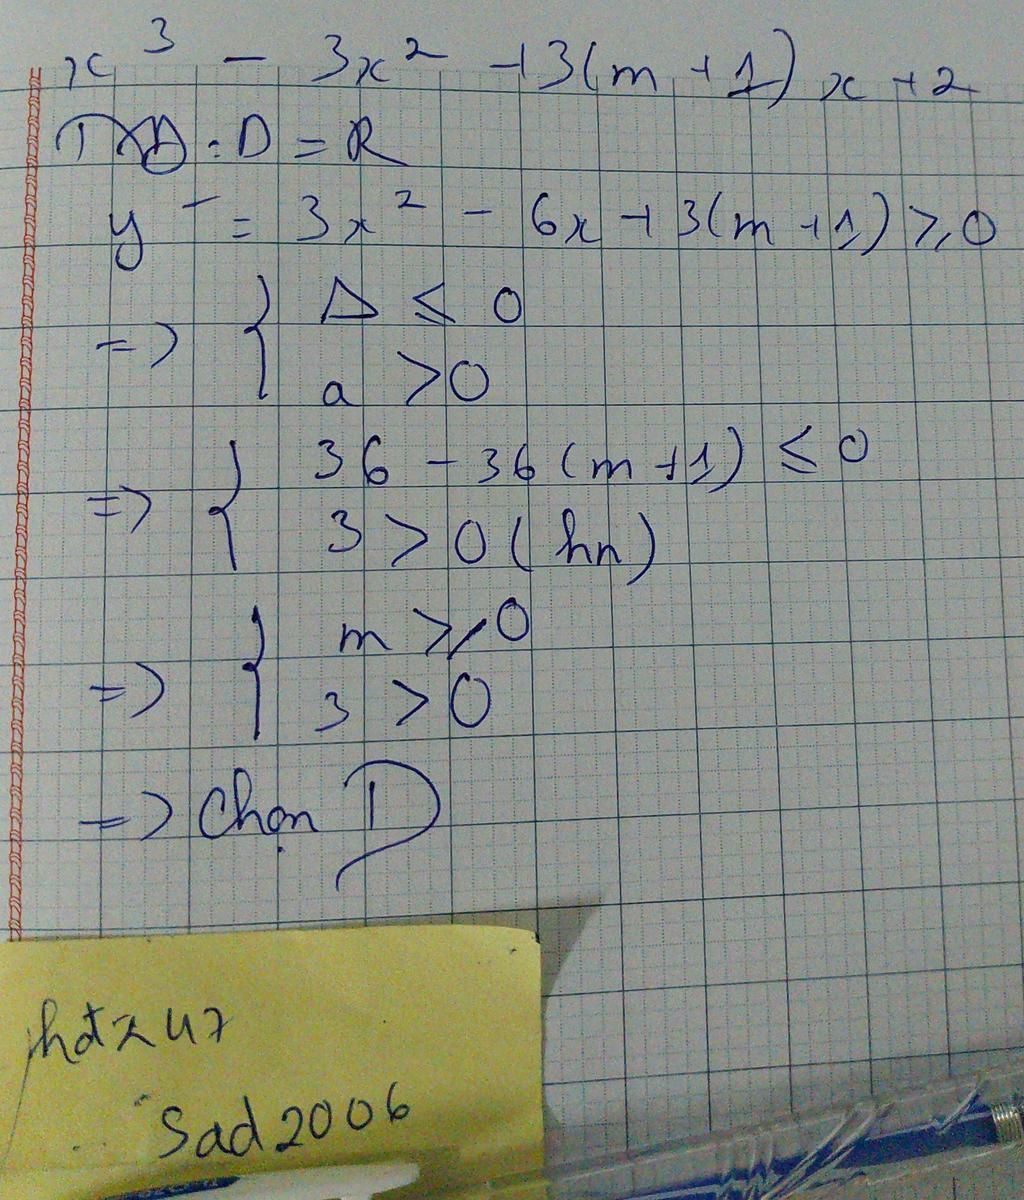 x³ - 3x² + 3(m + 1)x + 2
TXĐ: D = R
y' = 3x² - 6x + 3(m + 1) ≥ 0
=> { Δ ≤ 0
a > 0
=> { 36 - 36(m + 1) ≤ 0
3 > 0 (hn)
=> { m ≥ 0
3 > 0
=> Chọn D
Sad2006